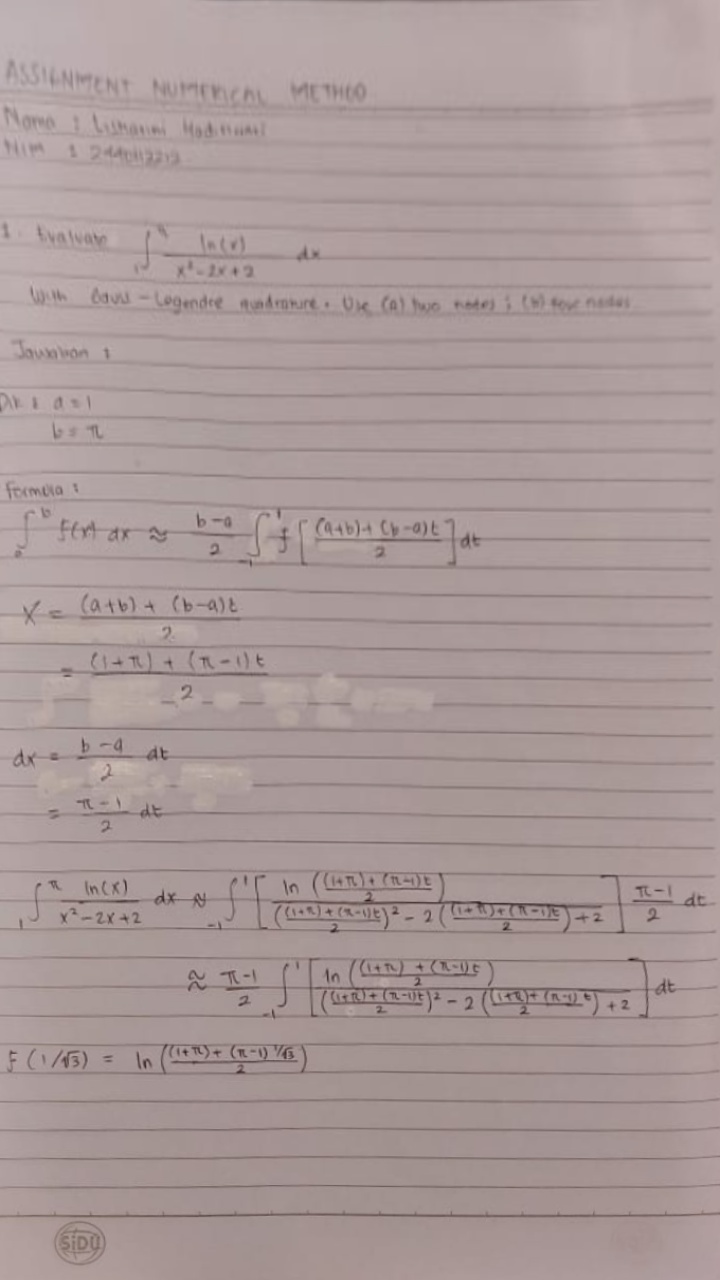 ASSIGNMENT NUMERICAL METHOD
Nama :
NIM :
1. Evaluate ∫₁^π ln(x) / (x²-2x+2) dx
With Gauss - Legendre quadrature. Use (a) two nodes ; (b) four nodes
Jawaban :
Dik : a = 1
b = π
Formula :
∫ₐᵇ f(x) dx ≈ (b-a)/2 ∫₋₁¹ f [ ((a+b)+(b-a)t)/2 ] dt
X = ((a+b) + (b-a)t)/2
= ((1+π) + (π-1)t)/2
dx = (b-a)/2 dt
= (π-1)/2 dt
∫₁^π ln(x)/(x²-2x+2) dx ≈ ∫₋₁¹ [ ln(((1+π)+(π-1)t)/2) / ((((1+π)+(π-1)t)/2)² - 2(((1+π)+(π-1)t)/2)+2) ] (π-1)/2 dt
≈ (π-1)/2 ∫₋₁¹ [ ln(((1+π)+(π-1)t)/2) / ((((1+π)+(π-1)t)/2)² - 2(((1+π)+(π-1)t)/2)+2) ] dt
F(1/√3) = ln(((1+π)+(π-1)1/√3)/2)
SiDU